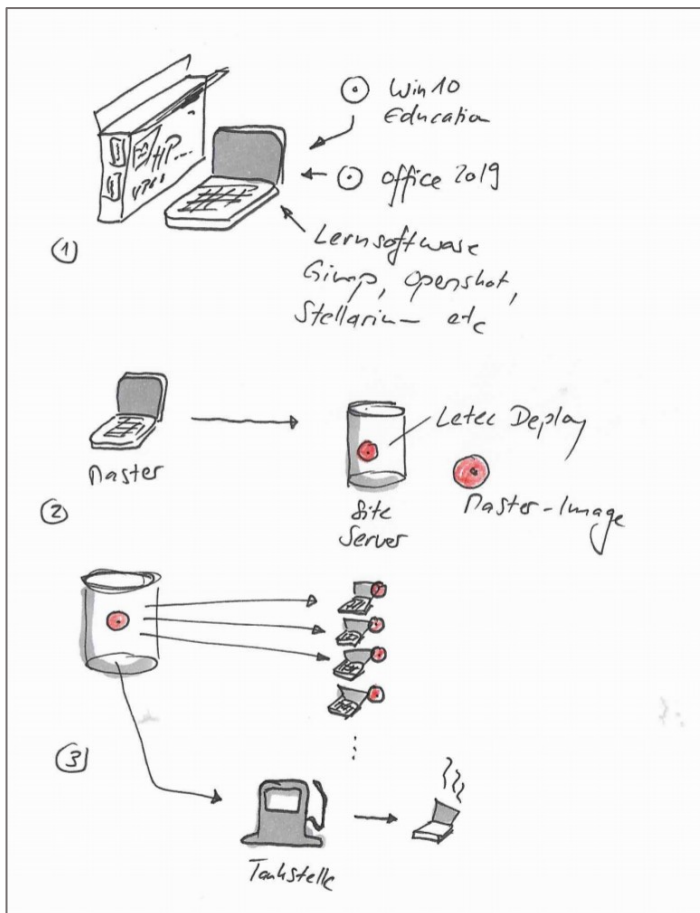 Win10
Education
HP...
Office 2019
①
Lernsoftware
Gimp, Openshot,
Stellarium etc
Letec Deploy
Master
Site
Server
Master-Image
②
③
Tankstelle